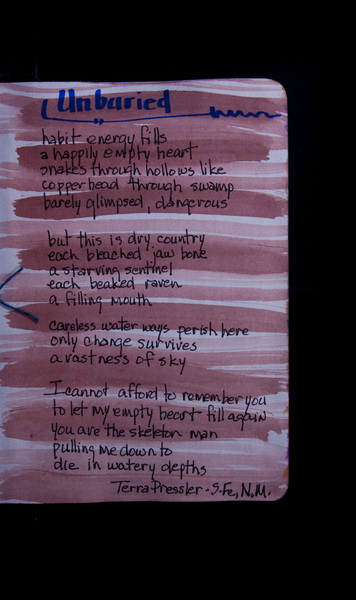 Unburied
habit energy fills
a happily empty heart
snakes through hollows like
copperhead through swamp
barely glimpsed, dangerous
but this is dry country
each bleached jaw bone
a starving sentinel
each beaked raven
a filling mouth
careless water ways perish here
only change survives
a vastness of sky
I cannot afford to remember you
to let my empty heart fill again
you are the skeleton man
pulling me down to
die in watery depths
Terra Pressler - S.Fe, N.M.